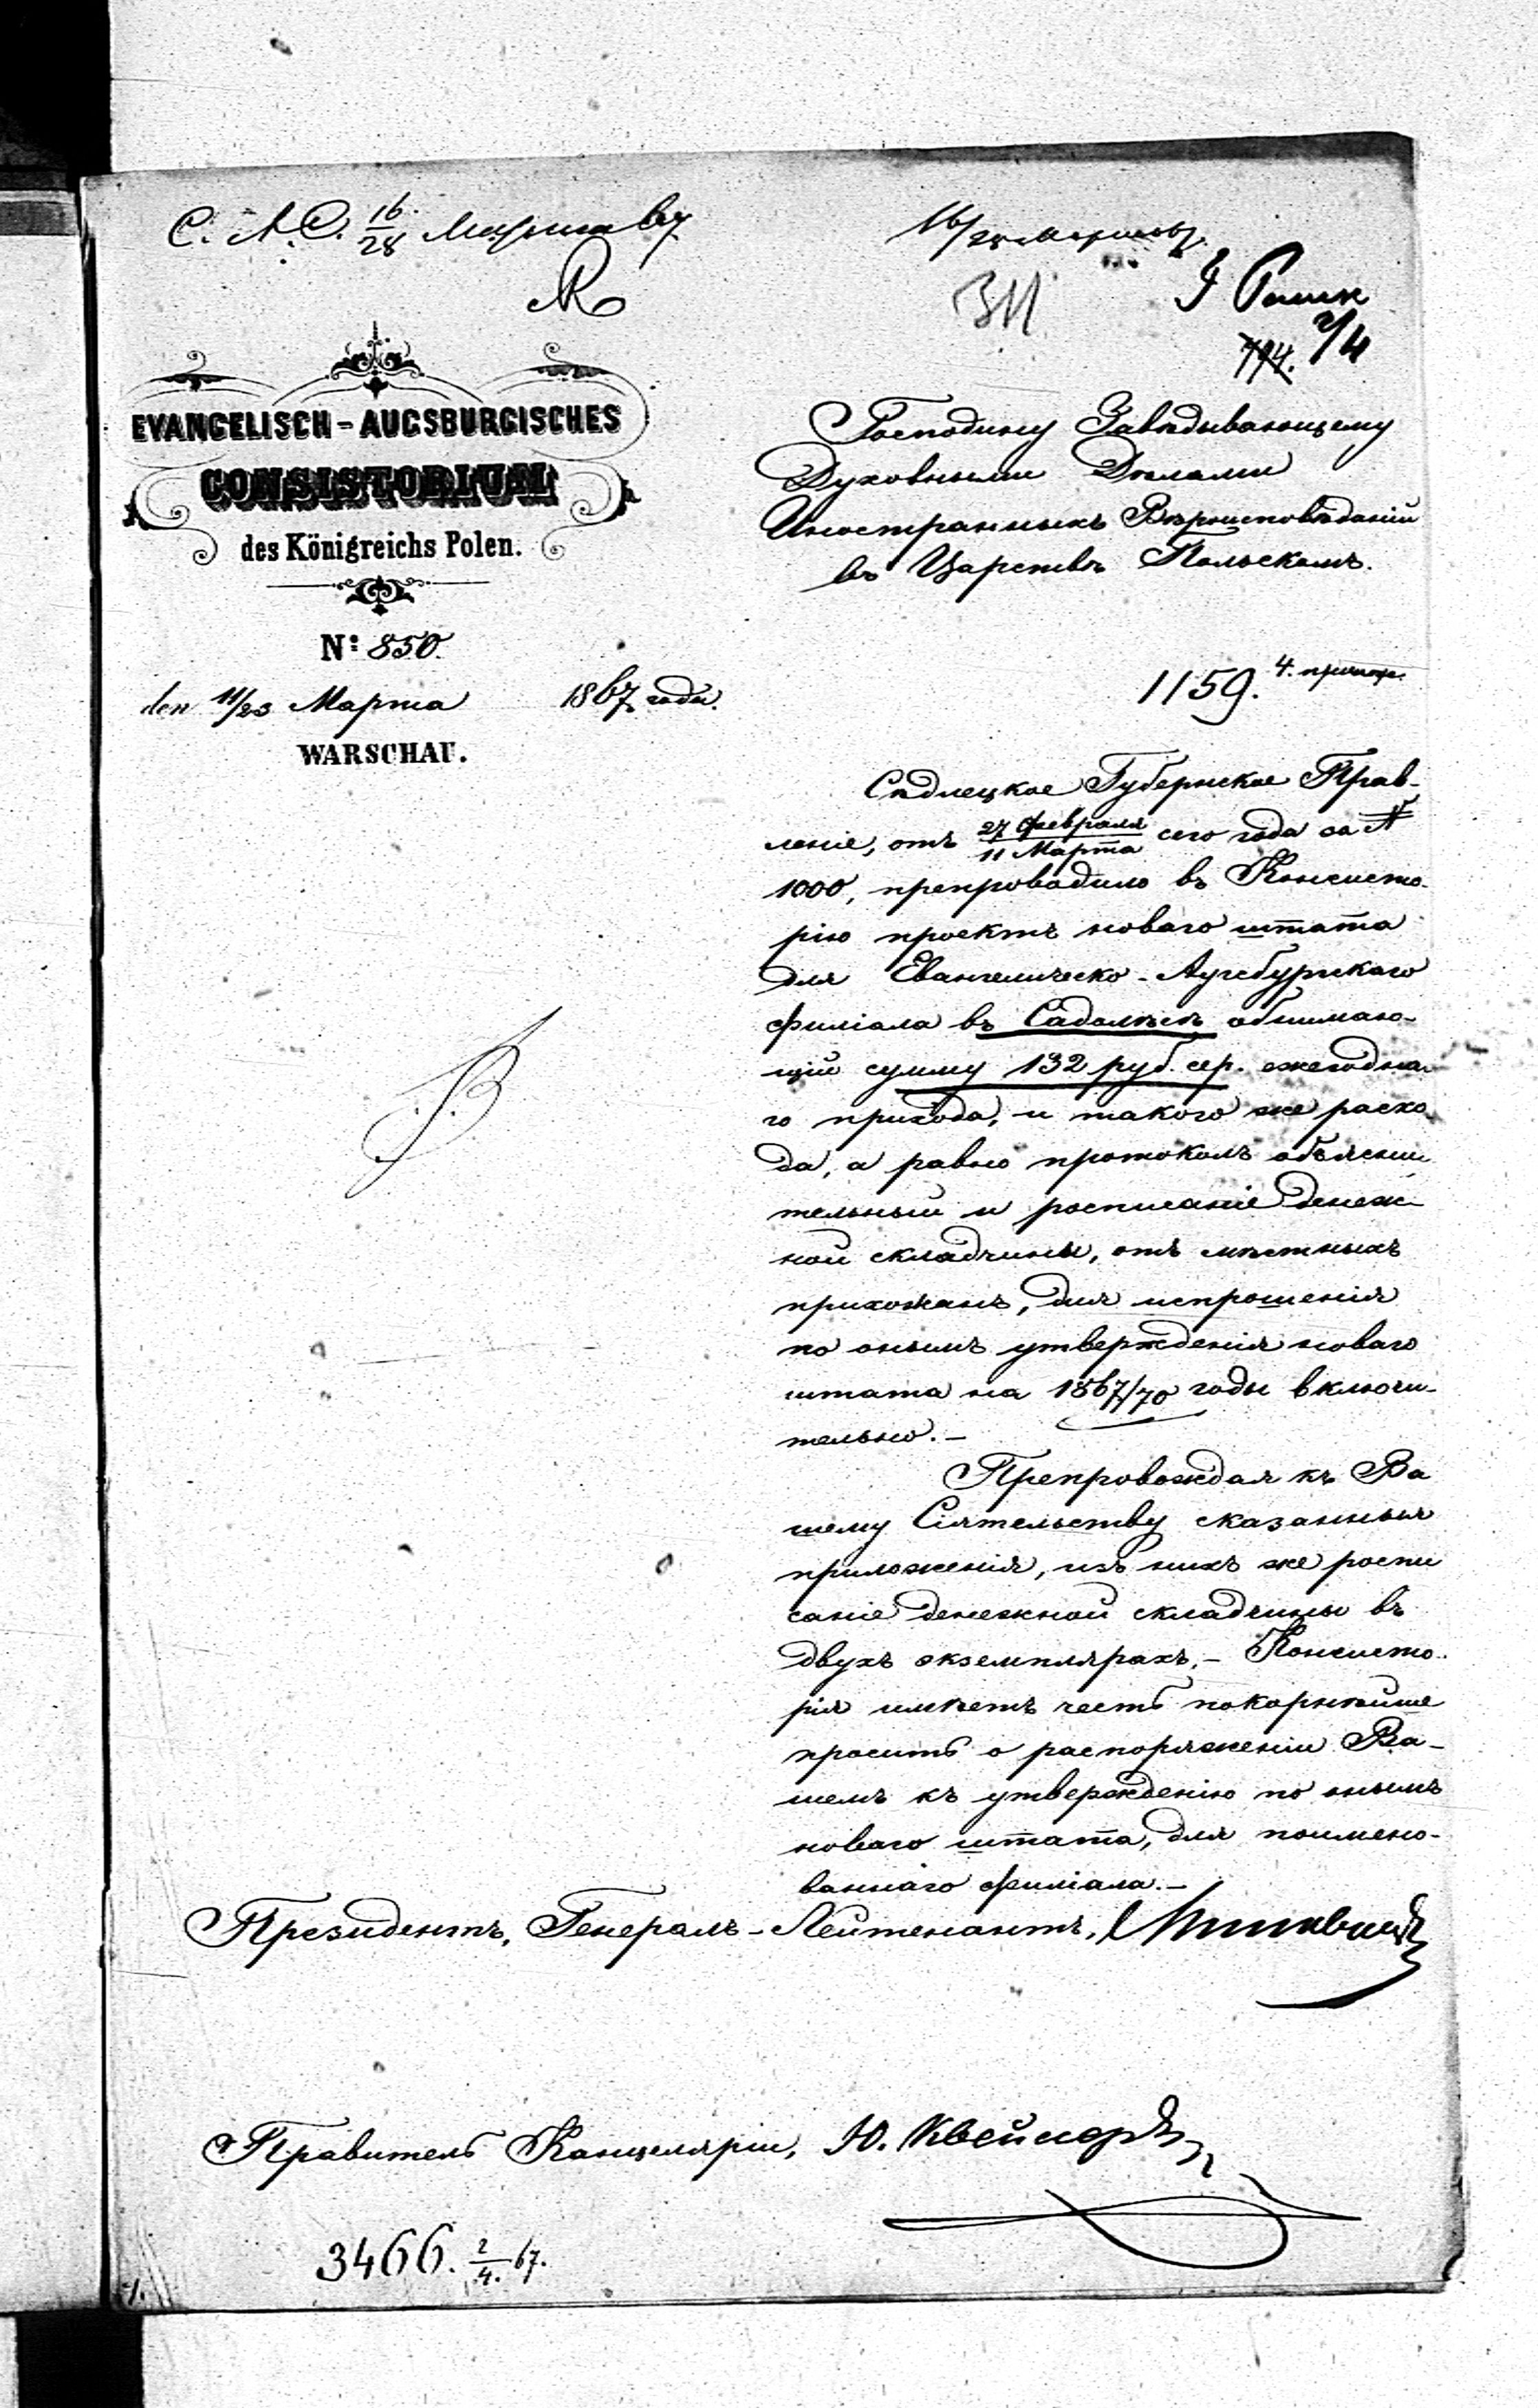 16/28 Марта 67
311
2/4
EVANGELISCH-AUGSBURGISCHES
CONSISTORIUM
des Königreichs Polen.
Nº 850.
den 11/23 Марта 1867 года.
WARSCHAU.
Господину Завѣдывающему
Духовными Дѣлами
Иностранныхъ Вѣроисповѣданій
въ Царствѣ Польскомъ.
1159.
Сѣдлецкое Губернское Прав-
леніе, отъ 27 Февраля/11 Марта сего года за №
1000, препроводило въ Консисто-
рію проектъ новаго штата
для Евангелическо-Аугсбургскаго
филіала въ Садолѣсѣ обнимаю-
щій сумму 132 руб. сер. ежегодна-
го прихода, и такого же расхо-
да, а равно протоколъ объясни-
тельный и росписаніе денеж-
ной складчины, отъ мѣстныхъ
прихожанъ, для испрошенія
по онымъ утвержденія новаго
штата на 1867/70 годы включи-
тельно.-
Препровождая къ Ва
шему Сіятельству сказанныя
приложенія, изъ нихъ же роспи
саніе денежной складчины въ
двухъ экземплярахъ,- Консисто-
рія имѣетъ честь покорнѣйше
просить о распоряженіи Ва-
шемъ къ утвержденію по онымъ
новаго штата, для поимено-
ваннаго филіала.-
Президентъ, Генералъ-Лейтенантъ,
Правитель Канцеляріи, Ю.
3466. 2/4. 67.